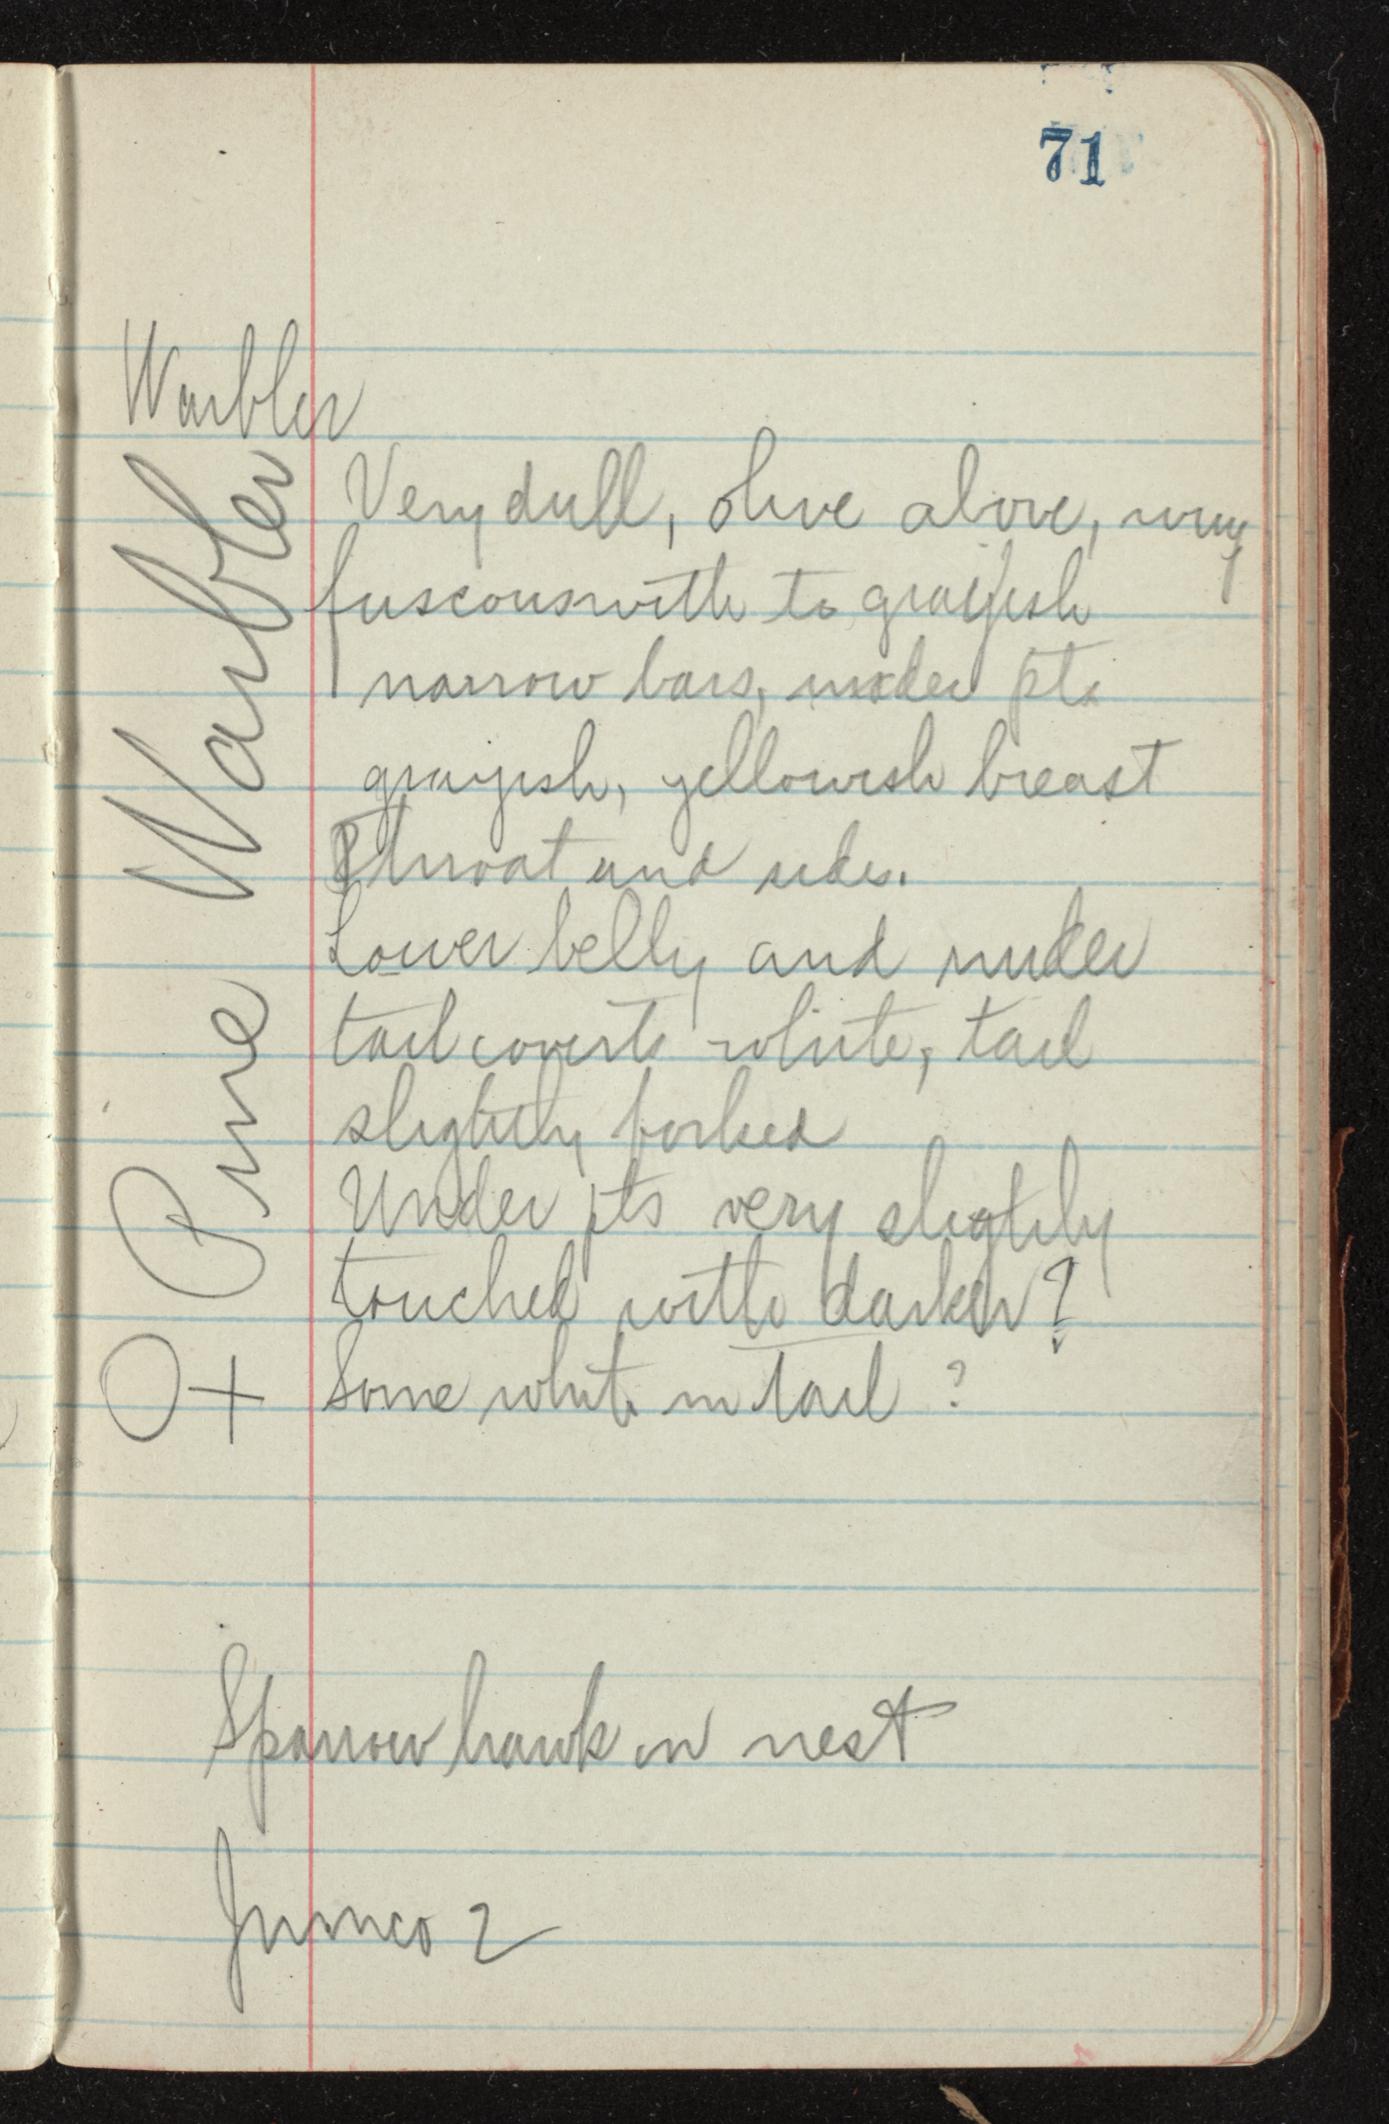 71
Warbler
Very dull, olive above, wing
fuscous with to grayish
narrow bars, under pts
grayish, yellowish breast
throat and sides.
Lower belly and under
tail coverts white, tail
slightly forked
Under pts very slightly
touched with darker?
Some white in tail ?
♀ Pine Warbler
Sparrow hawk in nest
Junco 2